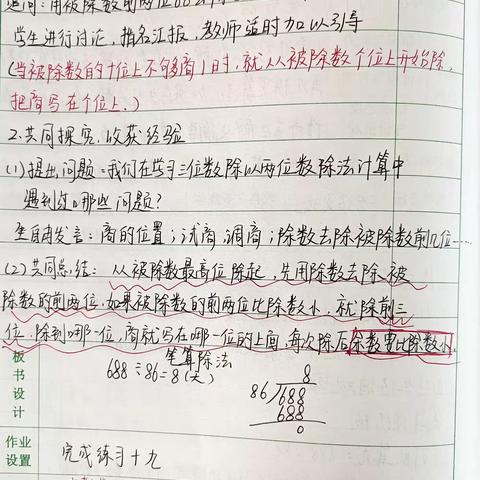 追问:用被除数前两位68
学生进行讨论,指名汇报,教师适时加以引导
(当被除数的十位上不够商1时,就从被除数个位上开始除,
把商写在个位上.)
2.共同探究,收获经验
(1)提出问题:我们在学习三位数除以两位数除法计算中
遇到过哪些问题?
生自由发言:商的位置;试商 调商;除数去除被除数前几位……
(2)共同总结: 从被除数最高位除起,先用除数去除被
除数的前两位.如果被除数的前两位比除数小,就除前三
位.除到哪一位,商就写在哪一位的上面,每次除后余数要比除数小.
板书设计
笔算除法
688÷86=8(
8
86 688
688
0
作业设置
完成练习十九